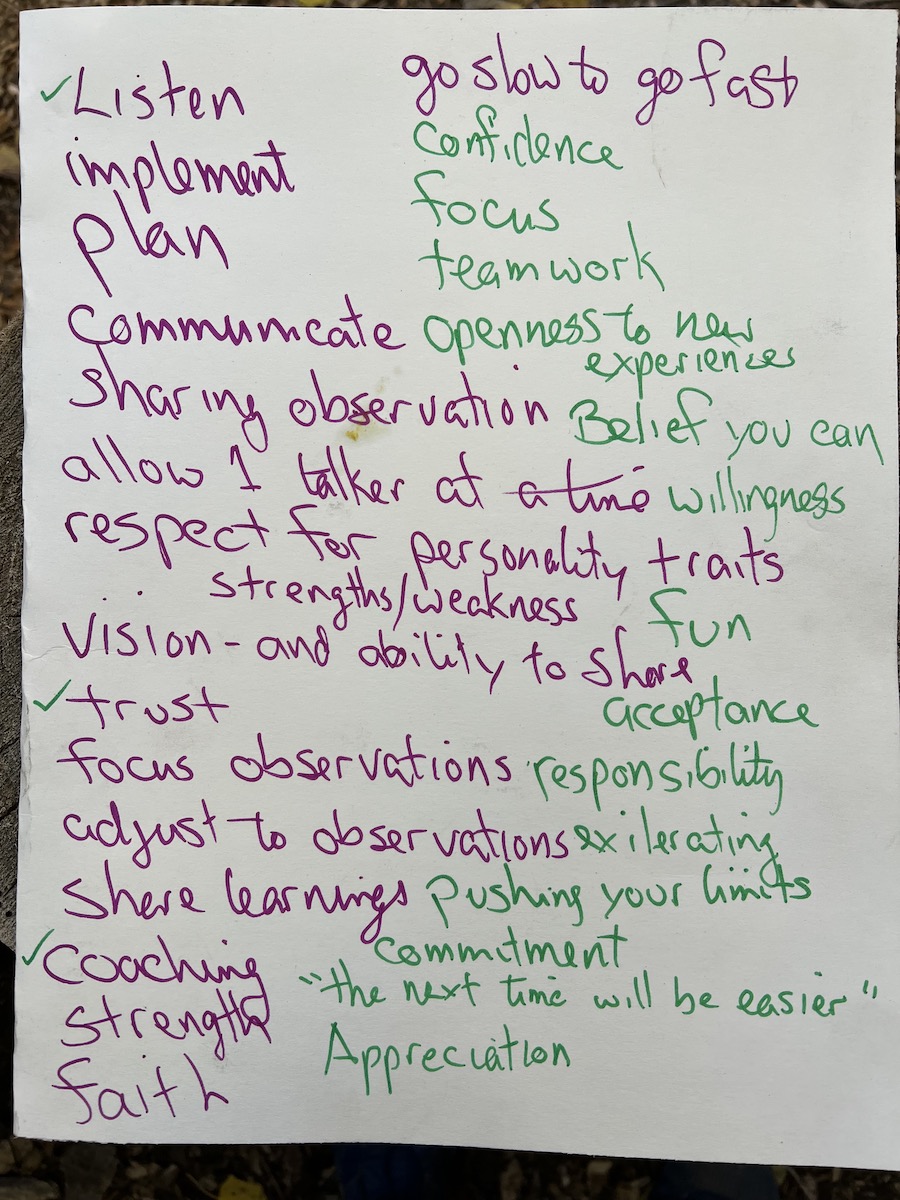 ✓ Listen
implement
plan
communicate
sharing observation
allow 1 talker at a time
respect for personality traits
strengths/weakness
Vision - and ability to share
✓ trust
focus observations
adjust to observations
share learnings
✓ Coaching
strength
faith
go slow to go fast
confidence
focus
teamwork
openness to new
experiences
Belief you can
willingness
fun
acceptance
responsibility
exilerating
pushing your limits
commitment
"the next time will be easier"
Appreciation